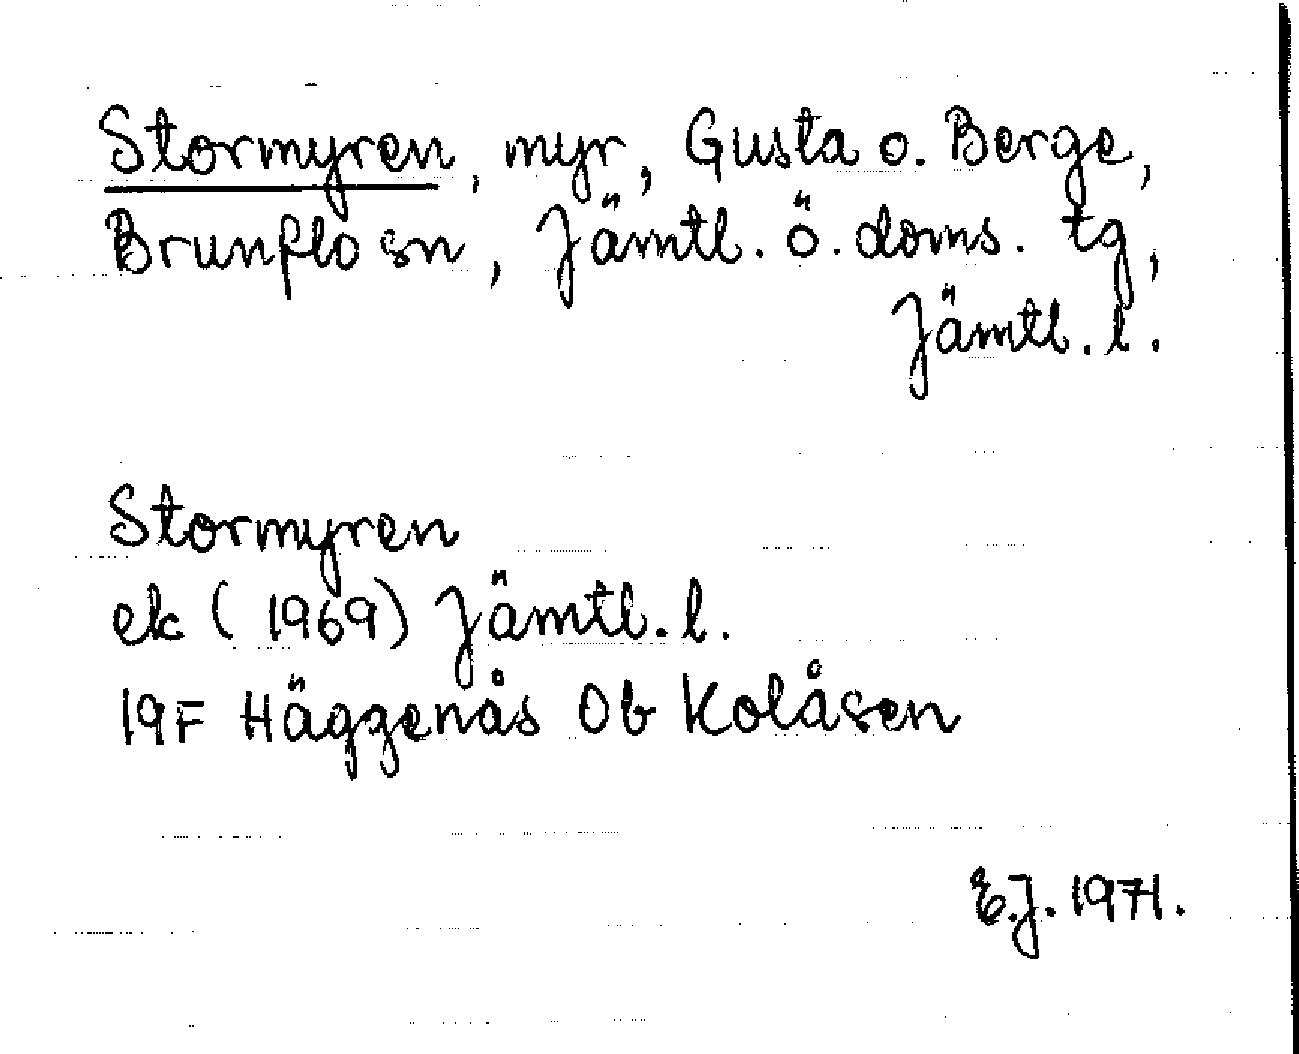 Stormyren, myr, Gusta o. Berge,
Brunflo sn, Jämtl. ö. doms. tg,
Jämtl. l.
Stormyren
ek (1969) Jämtl. l.
19F Häggenås Ob Kolåsen
E.J. 1971.